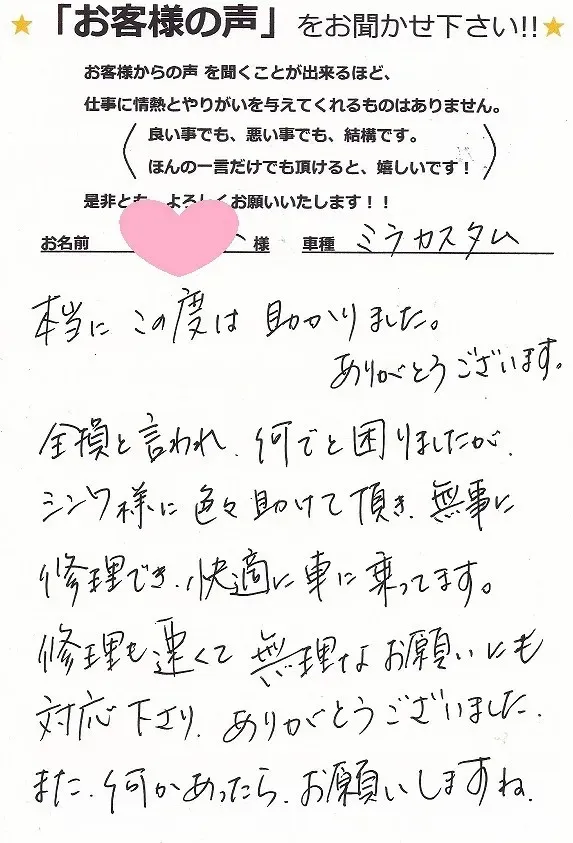 ★「お客様の声」をお聞かせ下さい!!★
お客様からの声 を聞くことが出来るほど、
仕事に情熱とやりがいを与えてくれるものはありません。
良い事でも、悪い事でも、結構です。
ほんの一言だけでも頂けると、嬉しいです！
是非とも、よろしくお願いいたします！！
お名前 様 車種 ミラカスタム
本当に この度は 助かりました。
ありがとうございます。
全損と言われ、何でと困りましたが、
シンワ様に色々助けて頂き、無事に
修理でき、快適に車に乗ってます。
修理も速くて 無理なお願いにも
対応下さり、ありがとうございました。
また、何かあったら、お願いしますね。